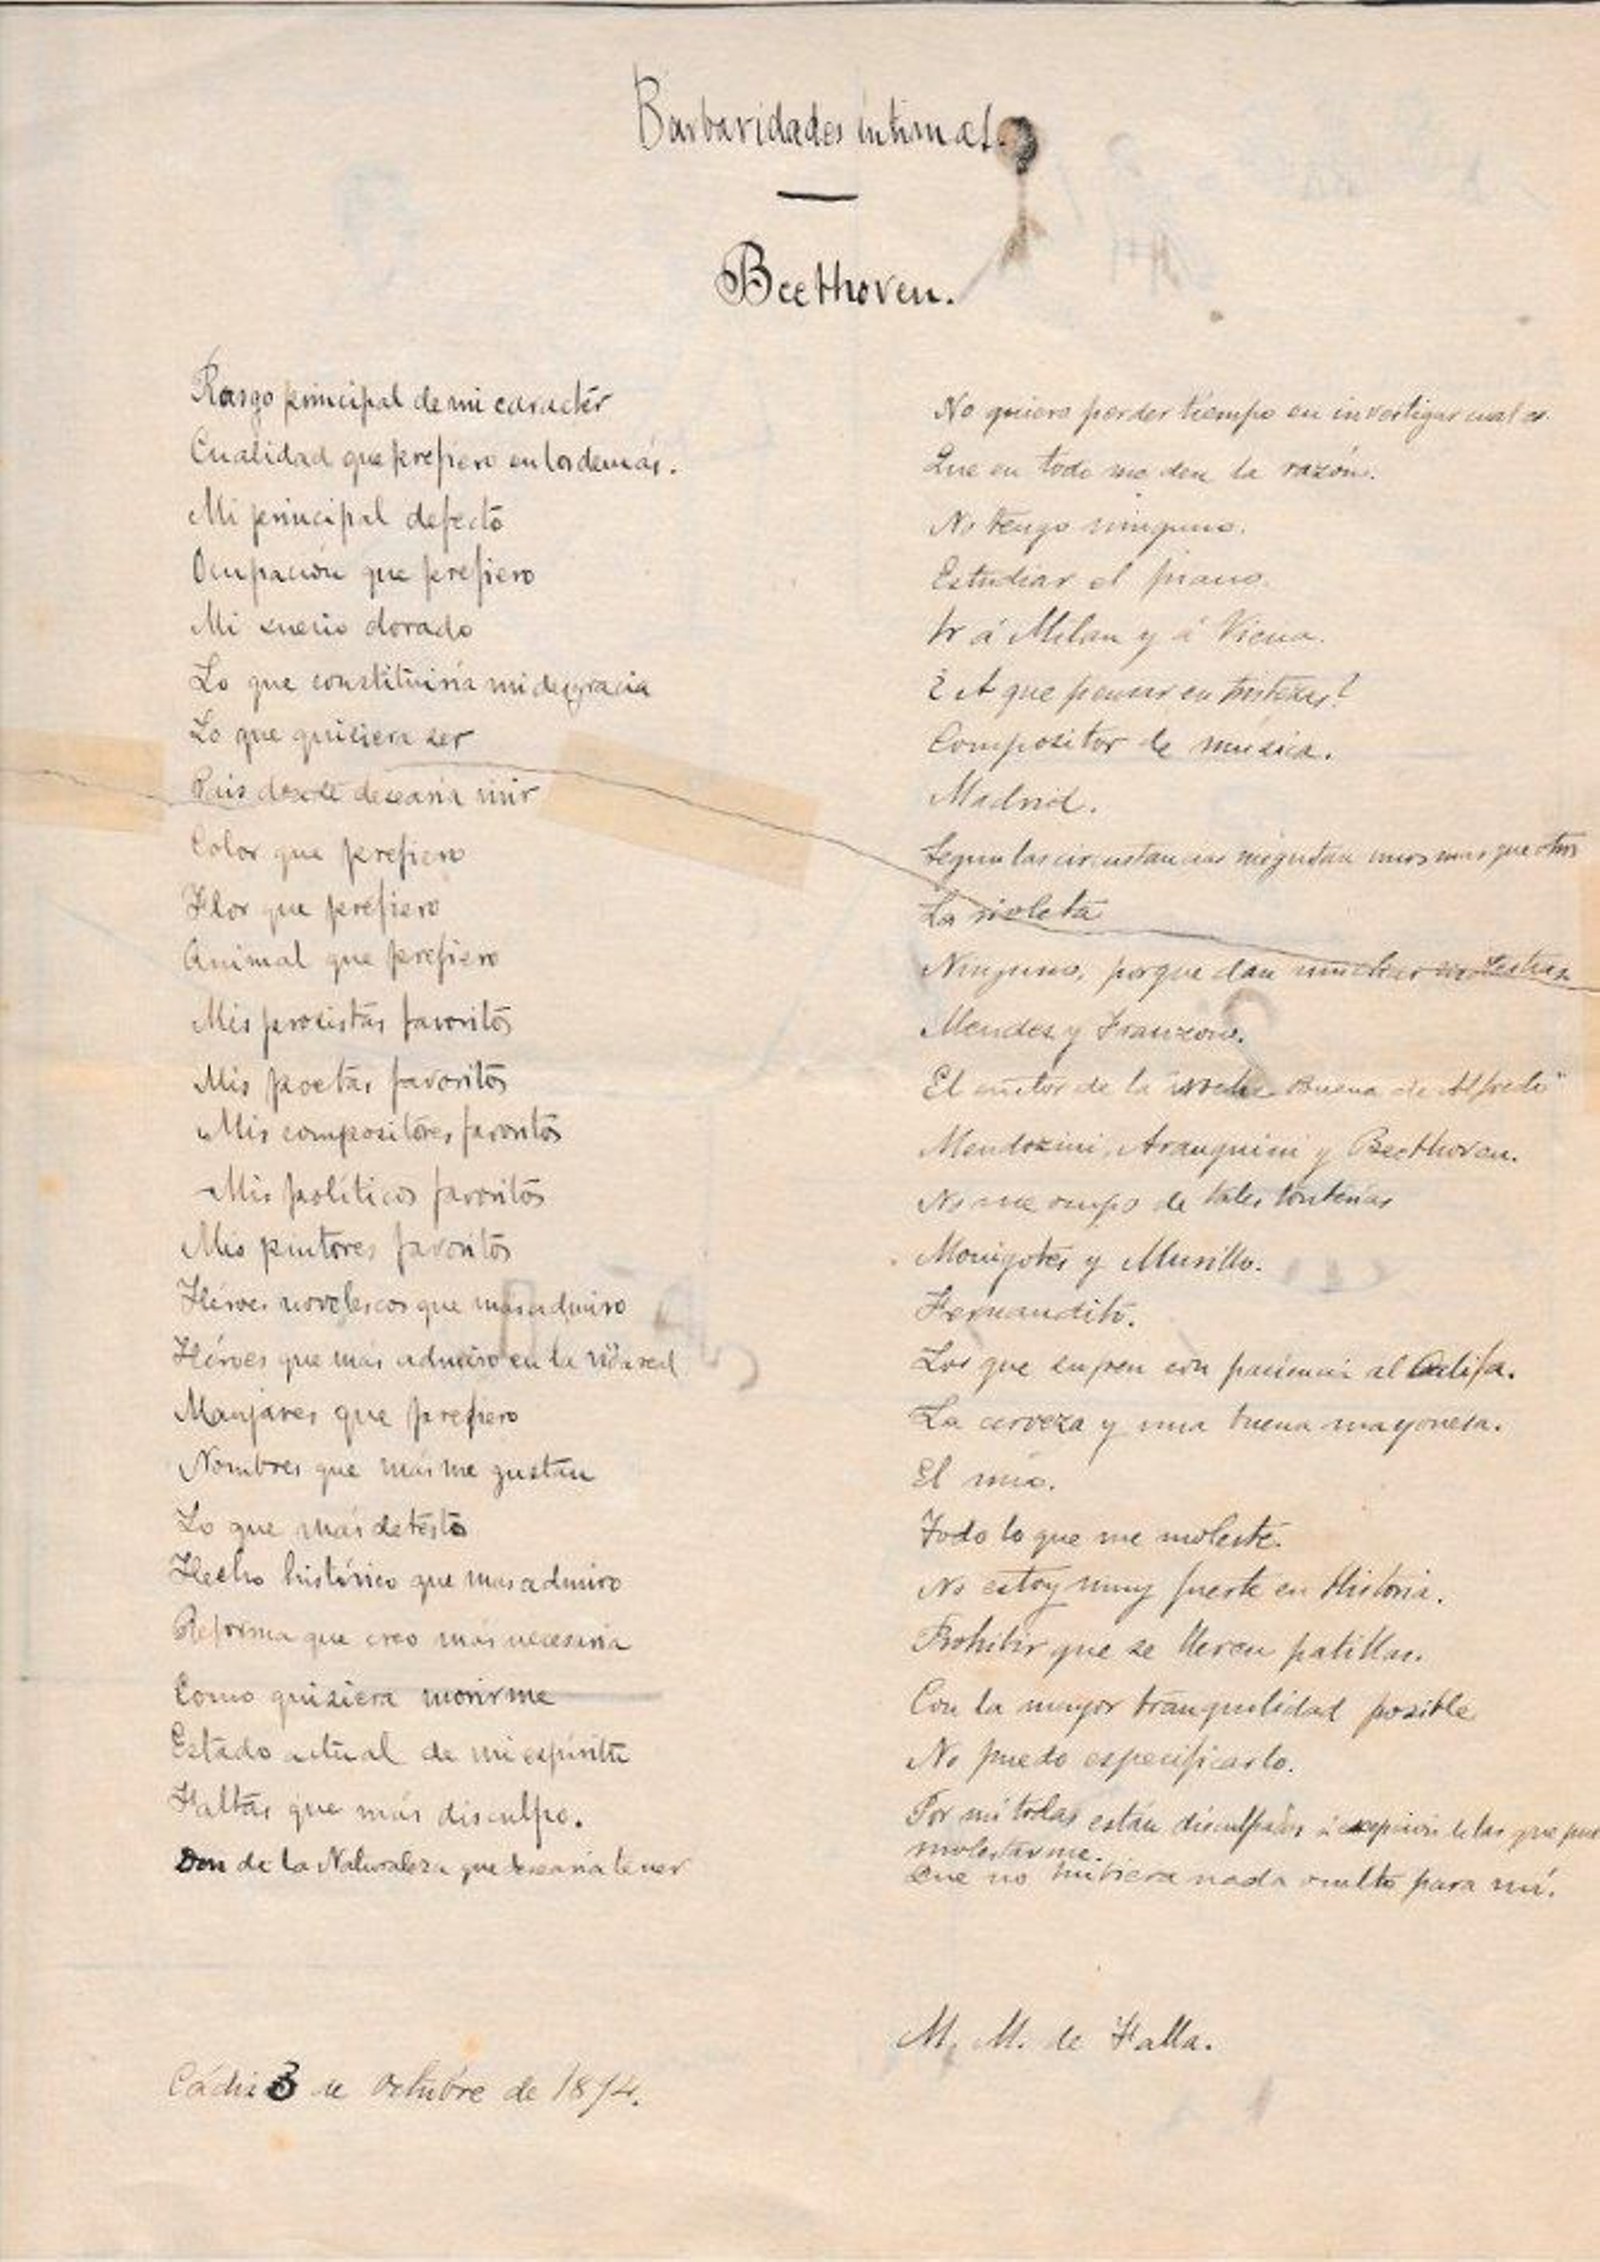 Barbaridades íntimas.
Beethoven.
Rasgo principal de mi carácter
No quiero perder tiempo en investigar cual es.
Cualidad que prefiero en los demás.
Que en todo me den la razón.
Mi principal defecto
No tengo ninguno.
Ocupación que prefiero
Estudiar el piano.
Mi sueño dorado
Ir á Milan y á Viena.
Lo que constituiría mi desgracia
¿A que pensar en tristezas?
Lo que quisiera ser
Compositor de música.
Pais donde desearia vivir
Madrid.
Color que prefiero
Segun las circustancias me gustan unos mas que otros
Flor que prefiero
La violeta
Animal que prefiero
Ninguno, porque dan muchas molestias.
Mis prosistas favoritos
Mendez y Franzoni.
Mis poetas favoritos
El autor de la "Noche Buena de Alfredo"
Mis compositores favoritos
Mendozini, Aranguini y Beethoven.
Mis políticos favoritos
No me ocupo de tales tonterías
Mis pintores favoritos
Monigotes y Murillo.
Héroes novelescos que mas admiro
Fernandito.
Héroes que mas admiro en la vida real
Los que sufren con paciencia al Califa.
Manjares que prefiero
La cerveza y una buena mayonesa.
Nombres que más me gustan
El mio.
Lo que más detesto
Todo lo que me moleste.
Hecho histórico que mas admiro
No estoy muy fuerte en Historia.
Reforma que creo más necesaria
Prohibir que se lleven patillas.
Como quisiera morirme
Con la mayor tranquilidad posible
Estado actual de mi espíritu
No puedo especificarlo.
Faltas que más disculpo.
Por mí todas están disculpadas á excepción de las que
molestarme.
Don de la Naturaleza que desearía tener
Que no hubiera nada oculto para mí.
M. M. de Falla.
Cádiz 3 de Octubre de 1894.